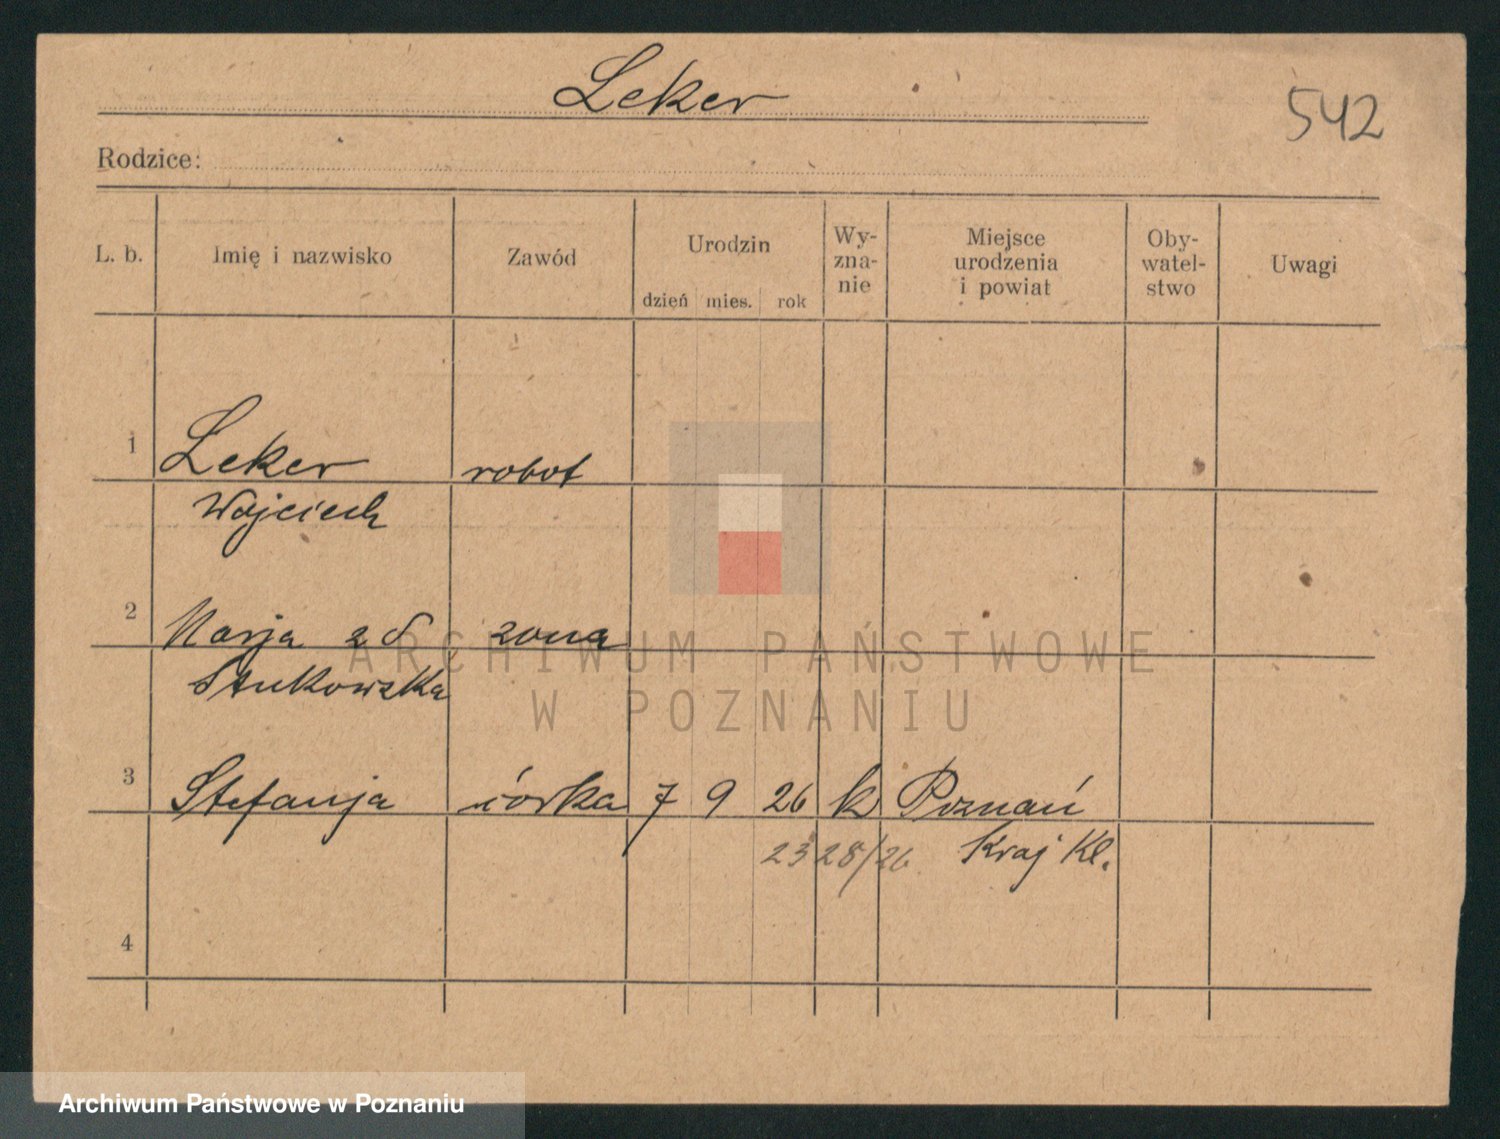 Leker
542
Rodzice:
L. b. Imię i nazwisko Zawód Urodzin dzień mies. rok Wy-zna-nie Miejsce urodzenia i powiat Oby-watel-stwo Uwagi
1 Leker robot
Wojciech
2 Marja z d żona
Stukowska
3 Stefanja córka 7 9 26 k Poznań
2328/26 Kraj Kl.
4
ARCHIWUM PAŃSTWOWE
W POZNANIU
Archiwum Państwowe w Poznaniu